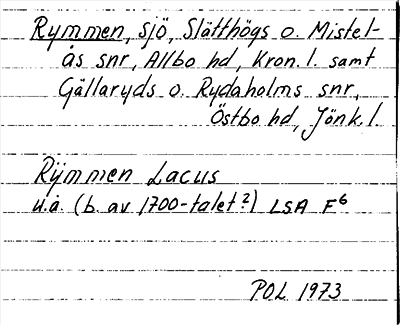 Rymmen, sjö, Slätthögs o. Mistel-
ås snr, Allbo hd, Kron. l. samt
Gällaryds o. Rydaholms snr,
Östbo hd, Jönk. l.
Rÿmmen Lacus
u.å. (b. av 1700-talet?) LSA F6
POL 1973